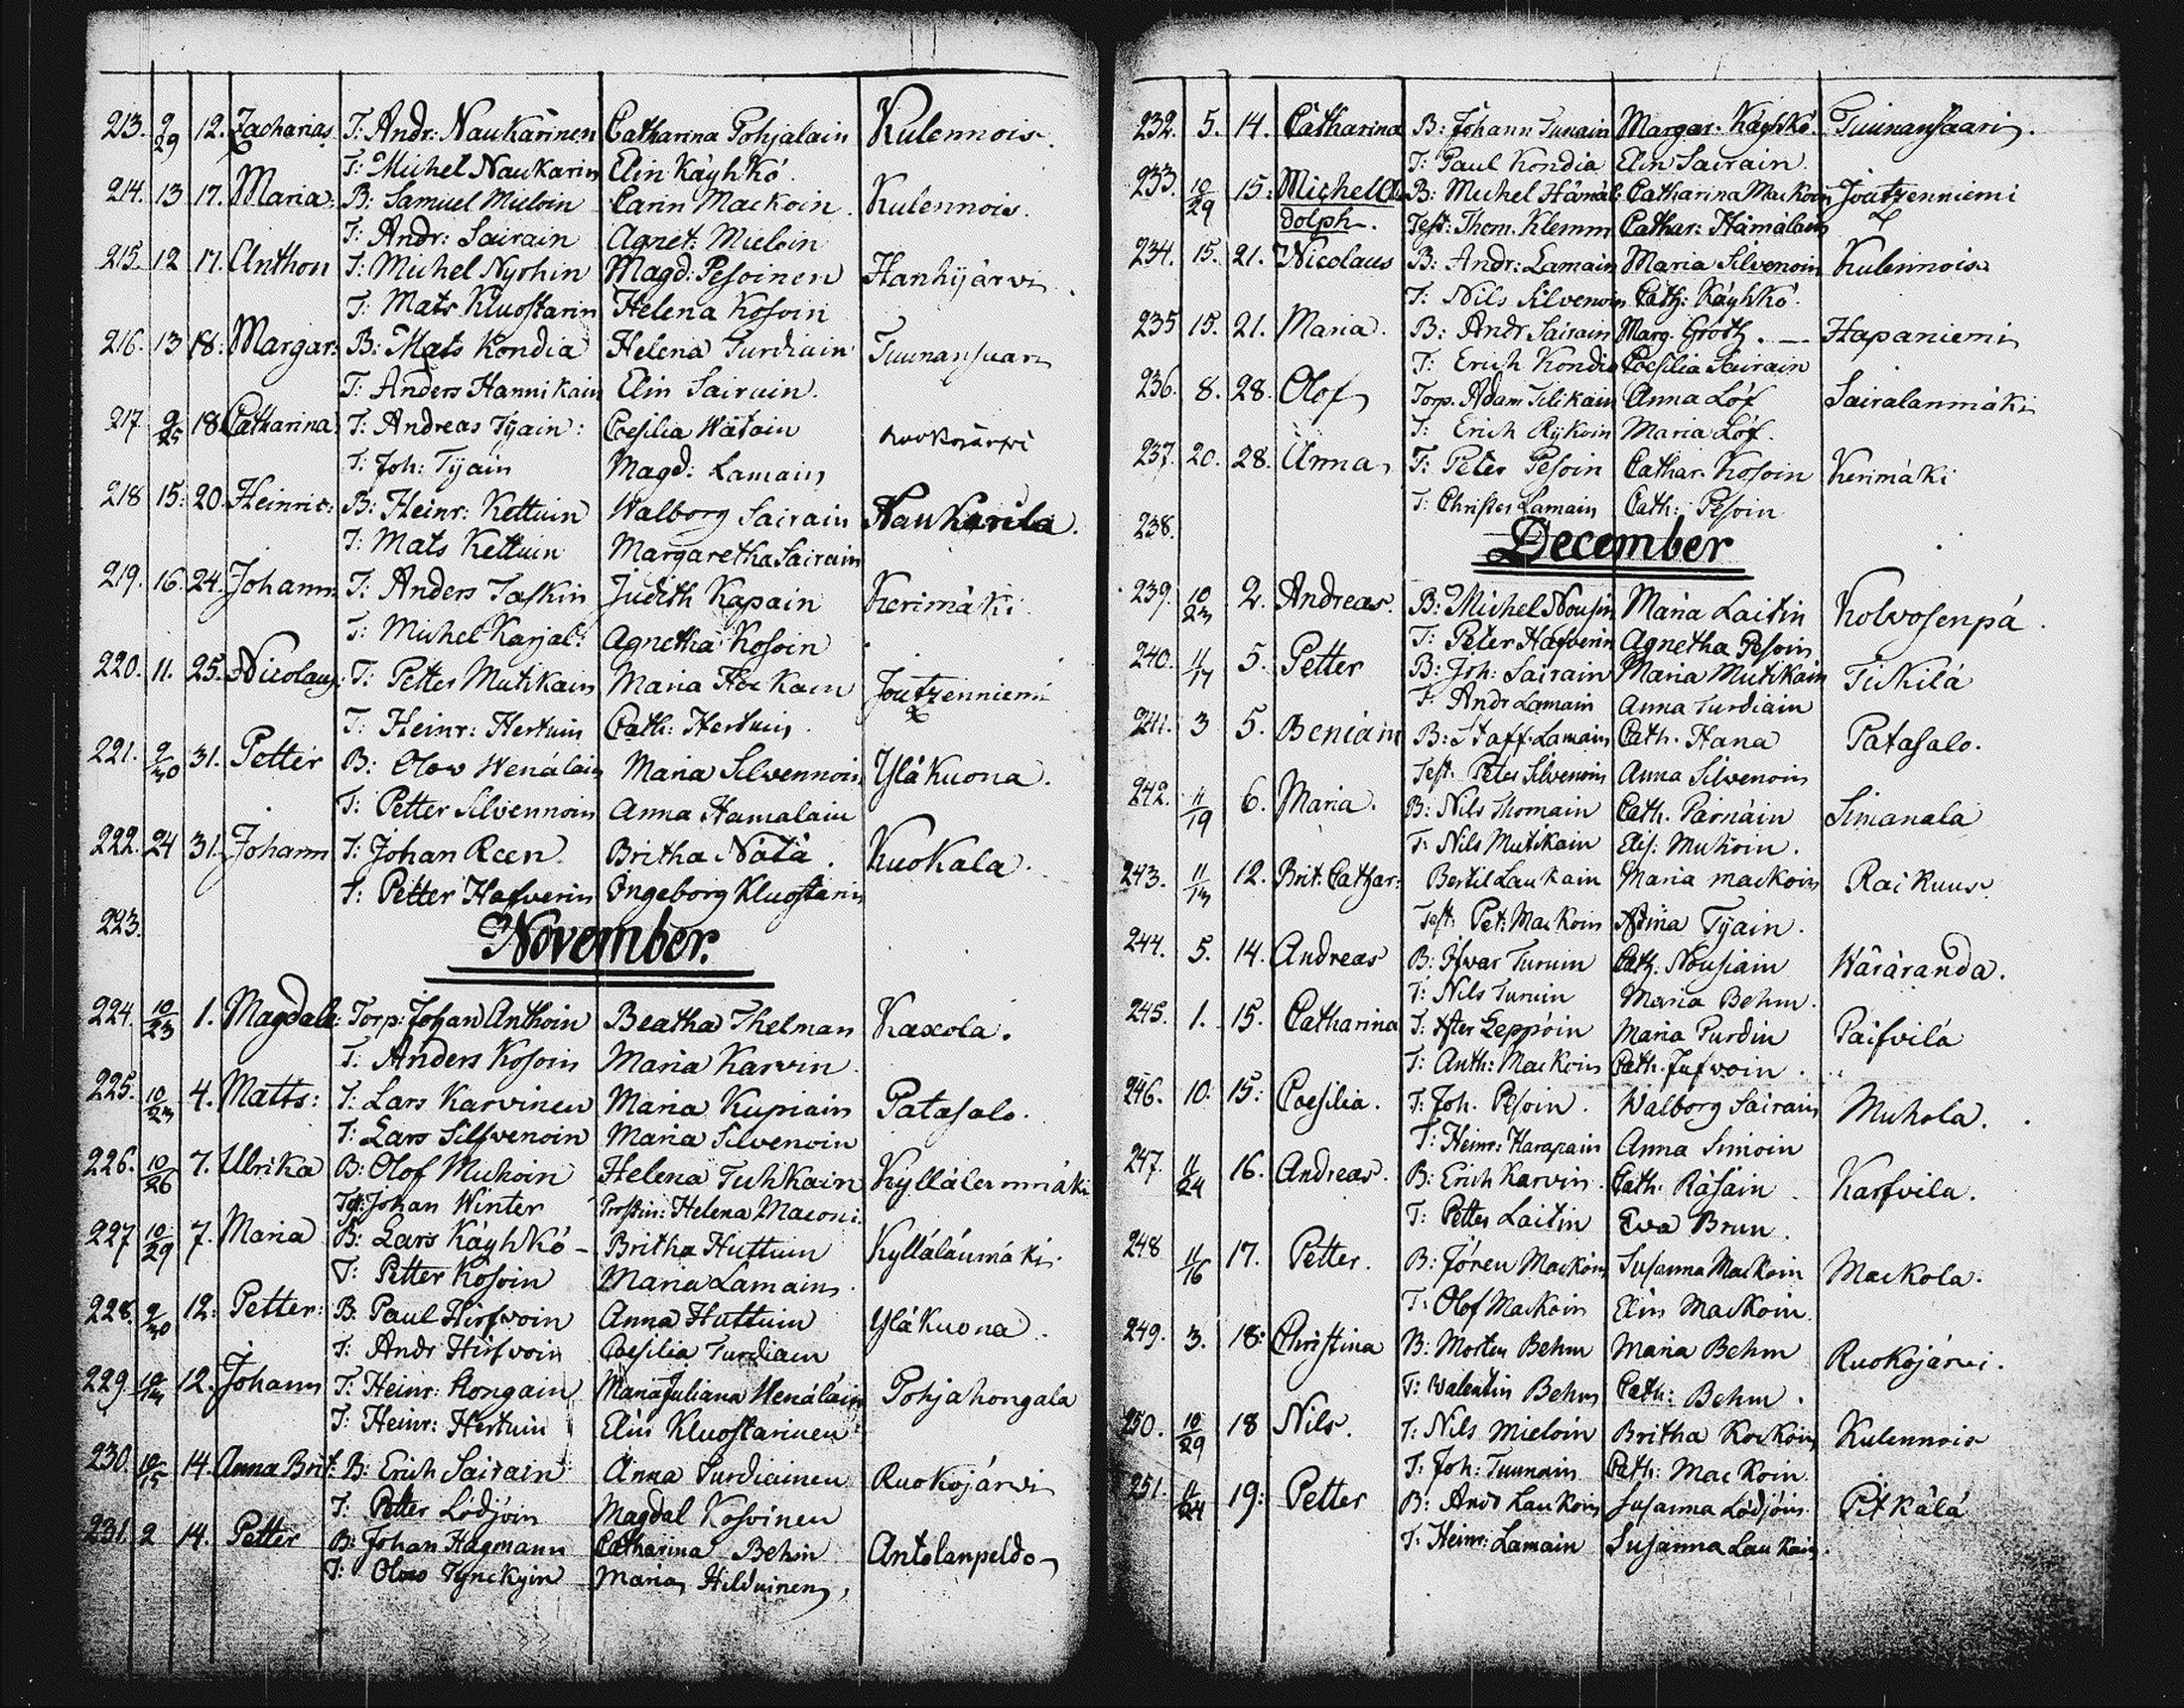 213. 9/29 12. Zacharias T: Andr: Naukarinen Catharina Pohjalain Kulennois.
T: Michel Naukarin Elin Käyhkö.
214. 13 17. Maria. B: Samuel Mieloin Carin Mackoin. Kulennois.
T: Andr: Sairain Agnet: Mieloin
215. 12 17. Anthon T: Michel Nyrhin Magd: Pesoinen Hanhijärvi
T: Mats Kluostarin Helena Kosoin
216. 13 18. Margar: B: Mats Kondia Helena Turdiain Tuunansaari
T: Anders Hannikain Elin Sairain.
217. 9/25 18. Catharina T: Andreas Tyäin: Coesilia Wätäin Ruokojärvi
T: Joh: Tyäin Magd: Lamain
218 15: 20. Heinric: B: Heinr: Kettuin Walborg Sairain Naukarila.
T: Mats Kettuin Margaretha Sairain
219. 16. 24. Johann T: Anders Taskin Judith Kapain Kerimäki
T: Michel Karjal: Agnetha Kosoin
220. 11. 25. Nicolaus. T: Petter Mutikain Maria Hockain Joutzenniemi
T: Heinr: Hertuin Cath: Hertuin.
221. 9/30 31. Petter B: Olow Wenäläin Maria Silvennoin Yläkuona.
T: Petter Silvennoin Anna Hamalain
222. 24 31. Johann T: Johan Reen. Britha Nätä. Kuokala.
T: Petter Hafverin Ingeborg Kluostarin
223.
November.
224. 10/23 1. Magdale: Torp: Johan Anthoin Beatha Thelman Kaxola.
T: Anders Kosoin Maria Karvin.
225. 10/23 4. Matts: T: Lars Karvinen Maria Kupiain Patasalo.
T: Lars Silfvenoin Maria Silvenoin
226. 10/26 7. Ulrika B: Olof Muhoin Helena Tuhkain Kyllälenmäki
Test: Johan Winter Prostin: Helena Maconi.
227 10/29 7. Maria B: Lars Käyhkö - Britha Huttuin Kylläläumäki.
T: Petter Kosoin Maria Lamain.
228. 9/30 12: Petter: B. Paul Hirfvoin Anna Huttuin Yläkuona.
T: Andr Hirfvoin Coesilia Turdiain
229. 12. Johann T: Heinr: Kongain Maria Juliana Wenäläin Pohjahongala
T: Heinr: Hertuin Elin Kluostarinen
230. 10/15 14. Anna Brit: B: Erich Sairain Anna Turdiainen Ruokojärvi
T: Petter Lödjöin Magdal Kosoinen
231. 2 14. Petter B: Johan Hagmann Catharina Behm Antolanpeldo
T: Olow Tynckyin Maria Hilduinen,
232. 5. 14. Catharina B: Johann Tunain Margar: Käyhkö. Tuunansaari.
T: Paul Kondia Elin Sairain.
233. 10/29 15: Michel A B: Michel Hämäl: Catharina Mackoin Joutzenniemi
dolph. Test: Thom. Klemm Cathar: Hämäläin
234. 15. 21. Nicolaus B: Andr: Lamain Maria Silvenoin Kulennois
T: Nils Silvenoin Cath: Käyhkö.
235 15. 21. Maria. B: Andr Sairain Marg. Groth. — Hapaniemi
T: Erich Kondia Coesilia Sairain
236. 8. 28. Olof Torp. Adam Tilikain Anna Löf Sairalanmäki
T: Erich Rykoin Maria Löf.
237. 20. 28. Anna T: Peter Pesoin Cathar. Kosoin Kerimäki
T: Christer Lamain Cath: Pesoin
238.
December
239. 10/23 2. Andreas. B: Michel Nousin Maria Laitin Kolvosenpä.
T: Peter Hafverin Agnetha Pesoin
240. 11/17 5. Petter B: Joh: Sairain Maria Mutikain Tickilä
T: Andr Lamain Anna Turdiain
241. 3 5. Beniam B: Staff. Lamain Cath. Hana Patasalo.
Test. Peter Silvenoin Anna Silvenoin
242. 11/19 6. Maria. B: Nils Thomain Cath. Pärnäin Simanala
T: Nils Mutikain Elis: Muhoin.
243. 11/13 12. Brit: Cathar: Bertil Laukain Maria Mackoin Raikuus.
Test: Pet: Mackoin Stina Tyäin.
244. 5. 14. Andreas B: Ifvar Turuin Cath. Nousiain Wäräranda.
T: Nils Turuin Maria Behm.
245. 1. 15. Catharina T: Leppöin Maria Purdin Päifvilä
T: Anth: Mackoin Cath. Jufvoin.
246. 10. 15: Coesilia. T: Joh. Pesoin. Walborg Sairain Muhola.
T: Heinr: Harapain Anna Simoin
247. 11/24 16. Andreas. B: Erich Karvin. Cath. Räsäin Karfvila.
T: Petter Laitin Eva Brun.
248 11/16 17. Petter. B: Jören Mackoin Susanna Mackoin Mackola.
T: Olof Mackoin Elin Mackoin.
249. 3. 18: Christina B: Morten Behm Maria Behm Ruokojärvi.
T: Walentin Behm Cath: Behm.
250. 10/29 18 Nils. T: Nils Mieloin Britha Kockoin Kulennois
T: Joh: Tuunain Cath: Mackoin.
251. 11/24 19: Petter B: And Laukoin Susanna Lödjöin. Pitkälä
T: Heinr: Lamain Susanna Laukain.